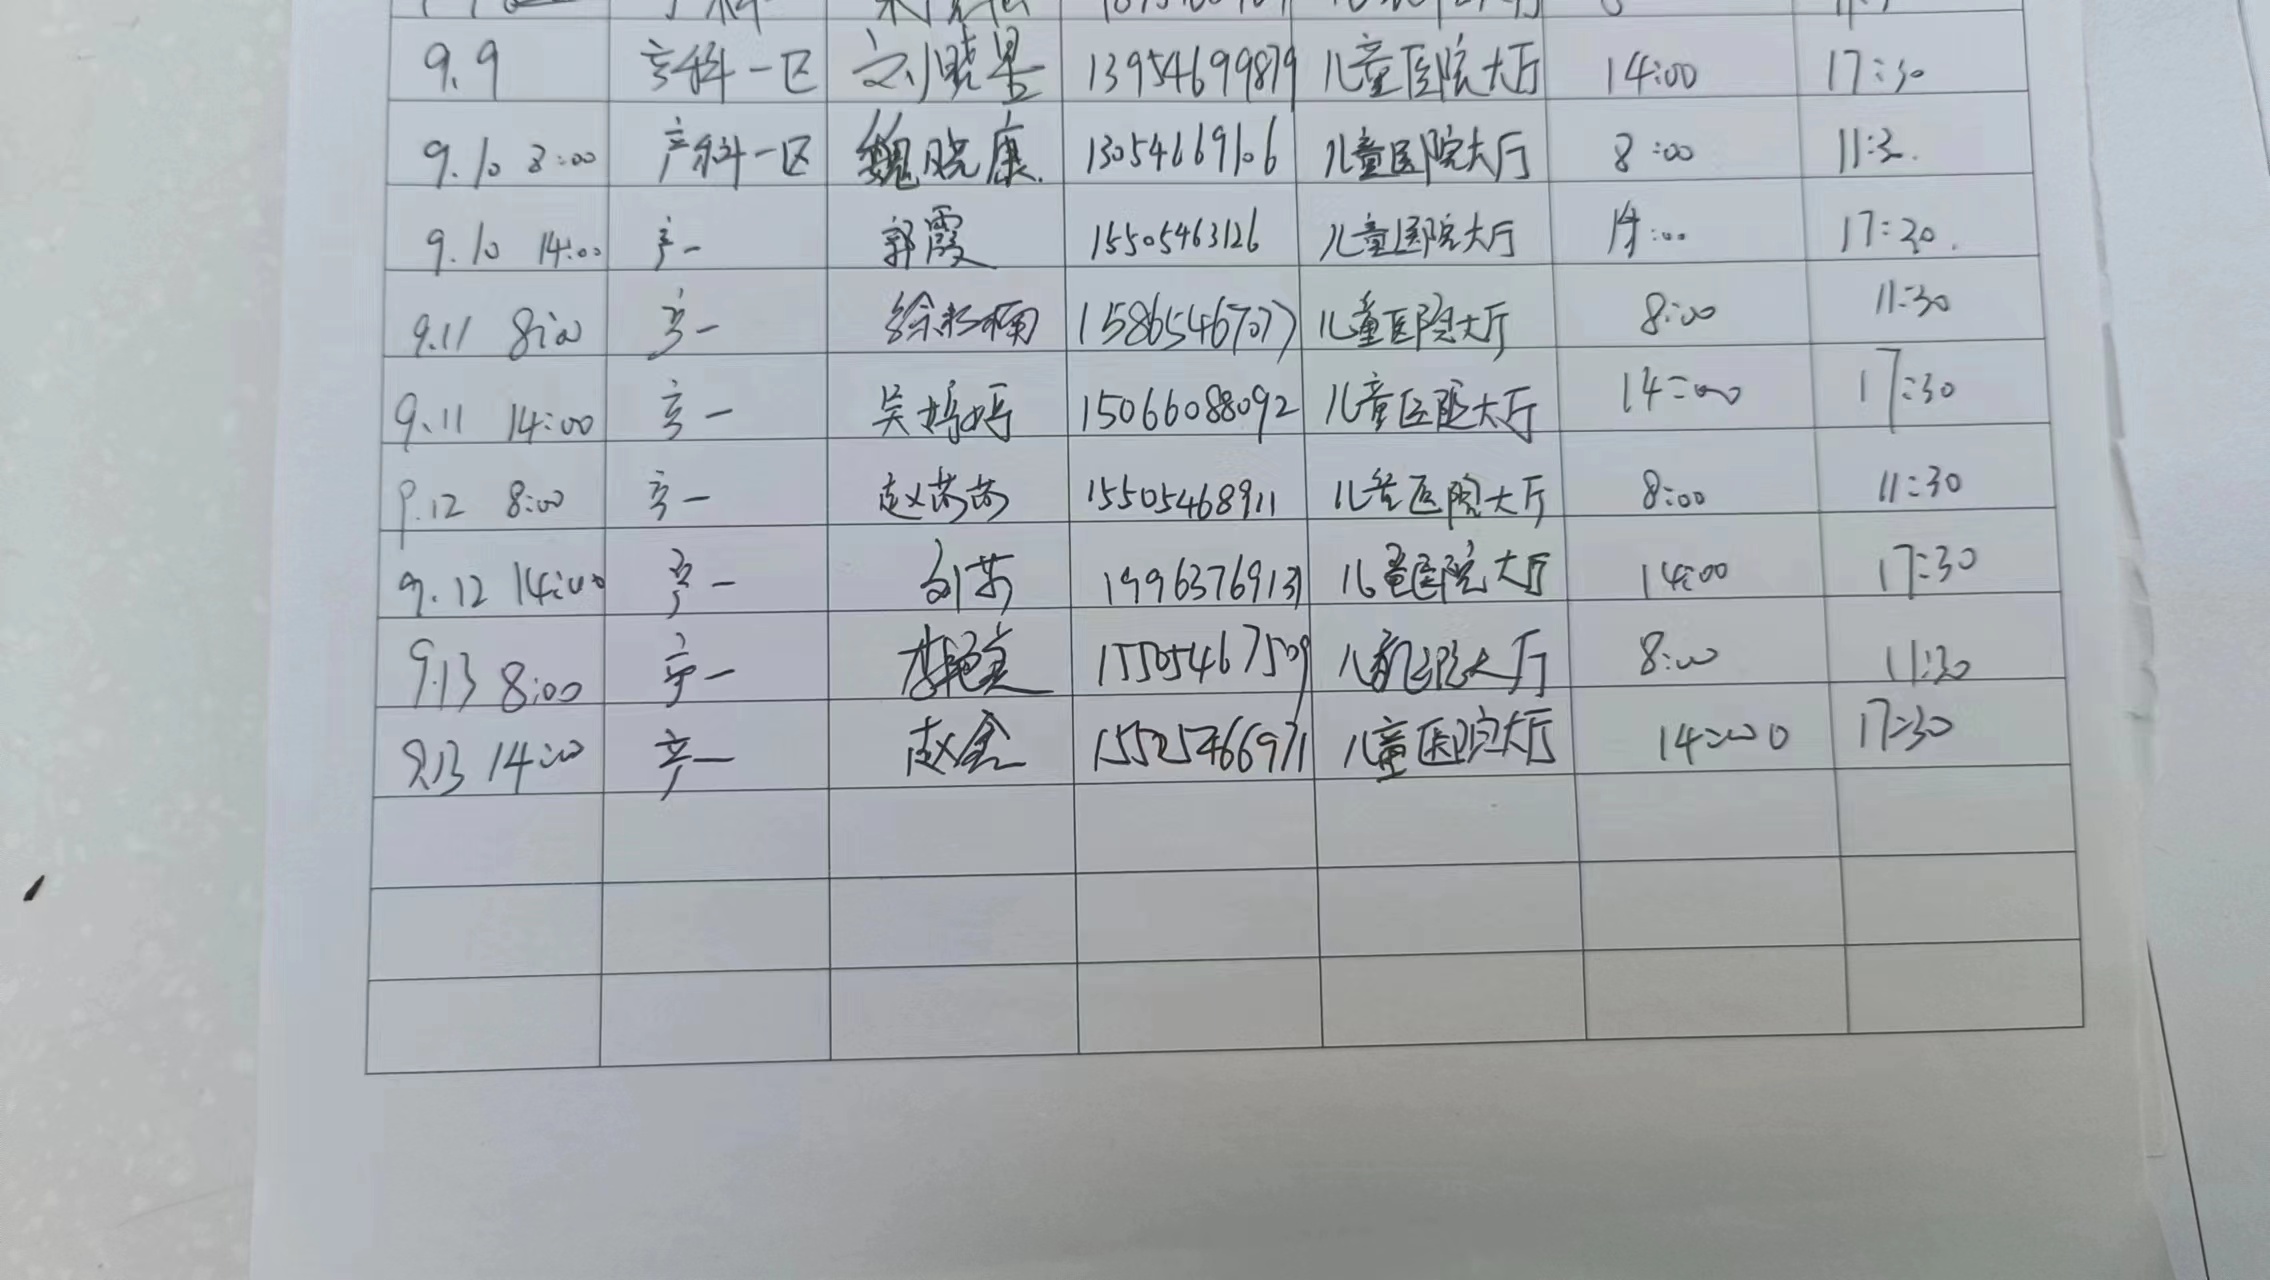 9.9 产科一区 刘晓墨 13954699879 儿童医院大厅 14:00 17:30
9.10 8:00 产科一区 魏晓康 13054669106 儿童医院大厅 8:00 11:30.
9.10 14:00 产一 郭霞 15505463126 儿童医院大厅 14:00 17:30.
9.11 8:00 产一 徐 楠 15865467077 儿童医院大厅 8:00 11:30
9.11 14:00 产一 吴婷婷 15066088092 儿童医院大厅 14:00 17:30
9.12 8:00 产一 赵芮芮 15505468911 儿童医院大厅 8:00 11:30
9.12 14:00 产一 刘芳 19963769131 儿童医院大厅 14:00 17:30
9.13 8:00 产一 李 15505467509 儿童医院大厅 8:00 11:30
9.13 14:00 产一 赵鑫 15525466971 儿童医院大厅 14:00 17:30